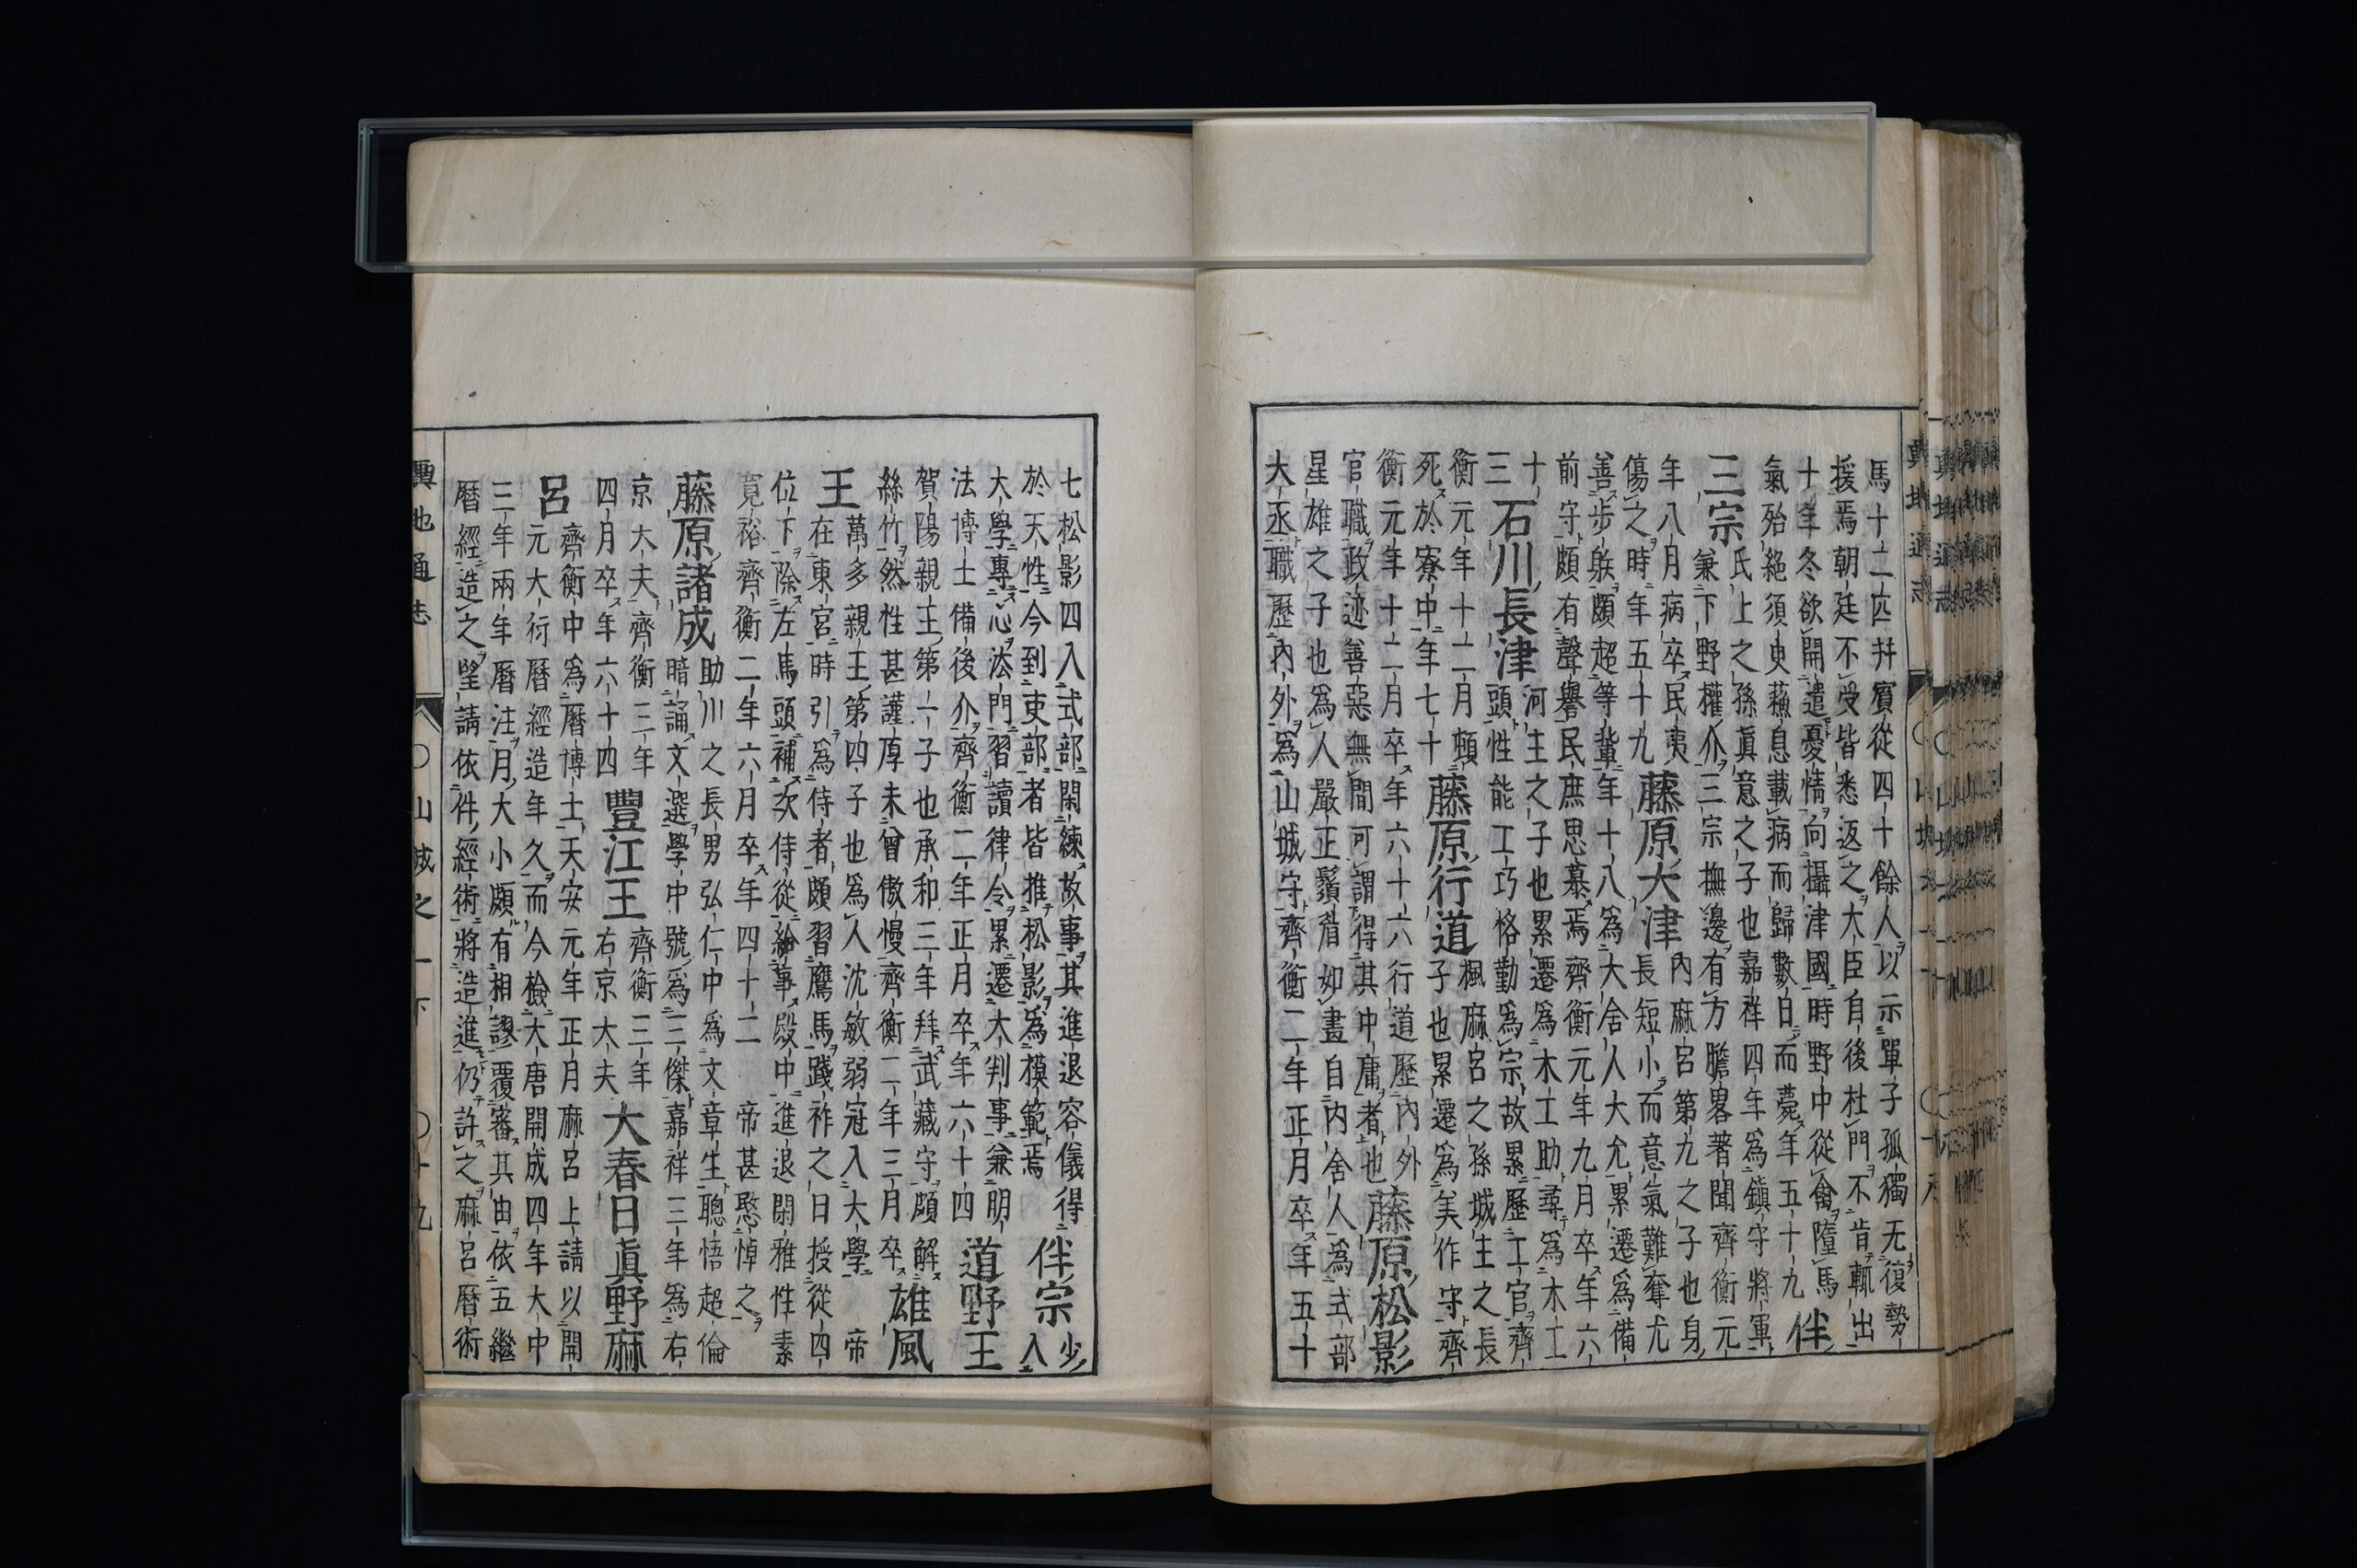 馬十二匹幷賓從四十餘人以示單子孤獨无復勢
援焉朝廷不受皆悉返之大臣自後杜門不肯輙出
十年冬欲開遣憂情向攝津國時野中從禽墮馬
氣殆絶須臾蘓息載病而歸數日而薨年五十九
伴
三宗
氏上之孫眞意之子也嘉祥四年爲鎮守將軍
兼下野權介三宗撫邊有方膽畧著聞齊衡元
年八月病卒民夷
傷之時年五十九
藤原大津
内麻呂第九之子也身
長短小而意氣難奪尤
善步躾頗超等輩年十八爲大舍人大允累遷爲備
前守頗有聲譽民庶思慕焉齊衡元年九月卒年六
十
三
石川長津
河主之子也累遷爲木工助尋爲木工
頭性能工巧格勤爲宗故累歷工官齊
衡元年十二月頓
死於寮中年七十
藤原行道
楓麻呂之孫城主之長
子也累遷爲美作守齊
衡元年十二月卒年六十六行道歷内外
官職政迹善惡無間可謂得其中庸者也
藤原松影
星雄之子也爲人嚴正鬚眉如畫自内舍人爲式部
大丞職歷内外爲山城守齊衡二年正月卒年五十
七松影四入式部閑練故事其進退容儀得
於天性今到吏部者皆推松影爲模範焉
伴宗
少
入
大學專心法門習讀律令累遷大判事兼明
法博士備後介齊衡二年正月卒年六十四
道野王
賀陽親王第一子也承和三年拜武藏守頗解
絲竹然性甚謹厚未曾傲慢齊衡二年三月卒
雄風
王
萬多親王第四子也爲人沈敏弱冠入大學 帝
在東宮時引爲侍者頗習鷹馬踐祚之日授從四
位下除左馬頭補次侍從給事殿中進退閑雅性素
寛裕齊衡二年六月卒年四十二 帝甚愍悼之
藤原諸成
助川之長男弘仁中爲文章生聰悟超倫
暗誦文選學中號爲三傑嘉祥三年爲右
京大夫齊衡三年
四月卒年六十四
豐江王
齊衡三年
右京大夫
大春日眞野麻
呂
齊衡中爲曆博士天安元年正月麻呂上請以開
元大衍曆經造年久而今檢大唐開成四年大中
三年兩年曆注月大小頗有相謬覆審其由依五繼
曆經造之望請依件經術將造進仍許之麻呂曆術
輿地通志 〇山城之一下 〇十九